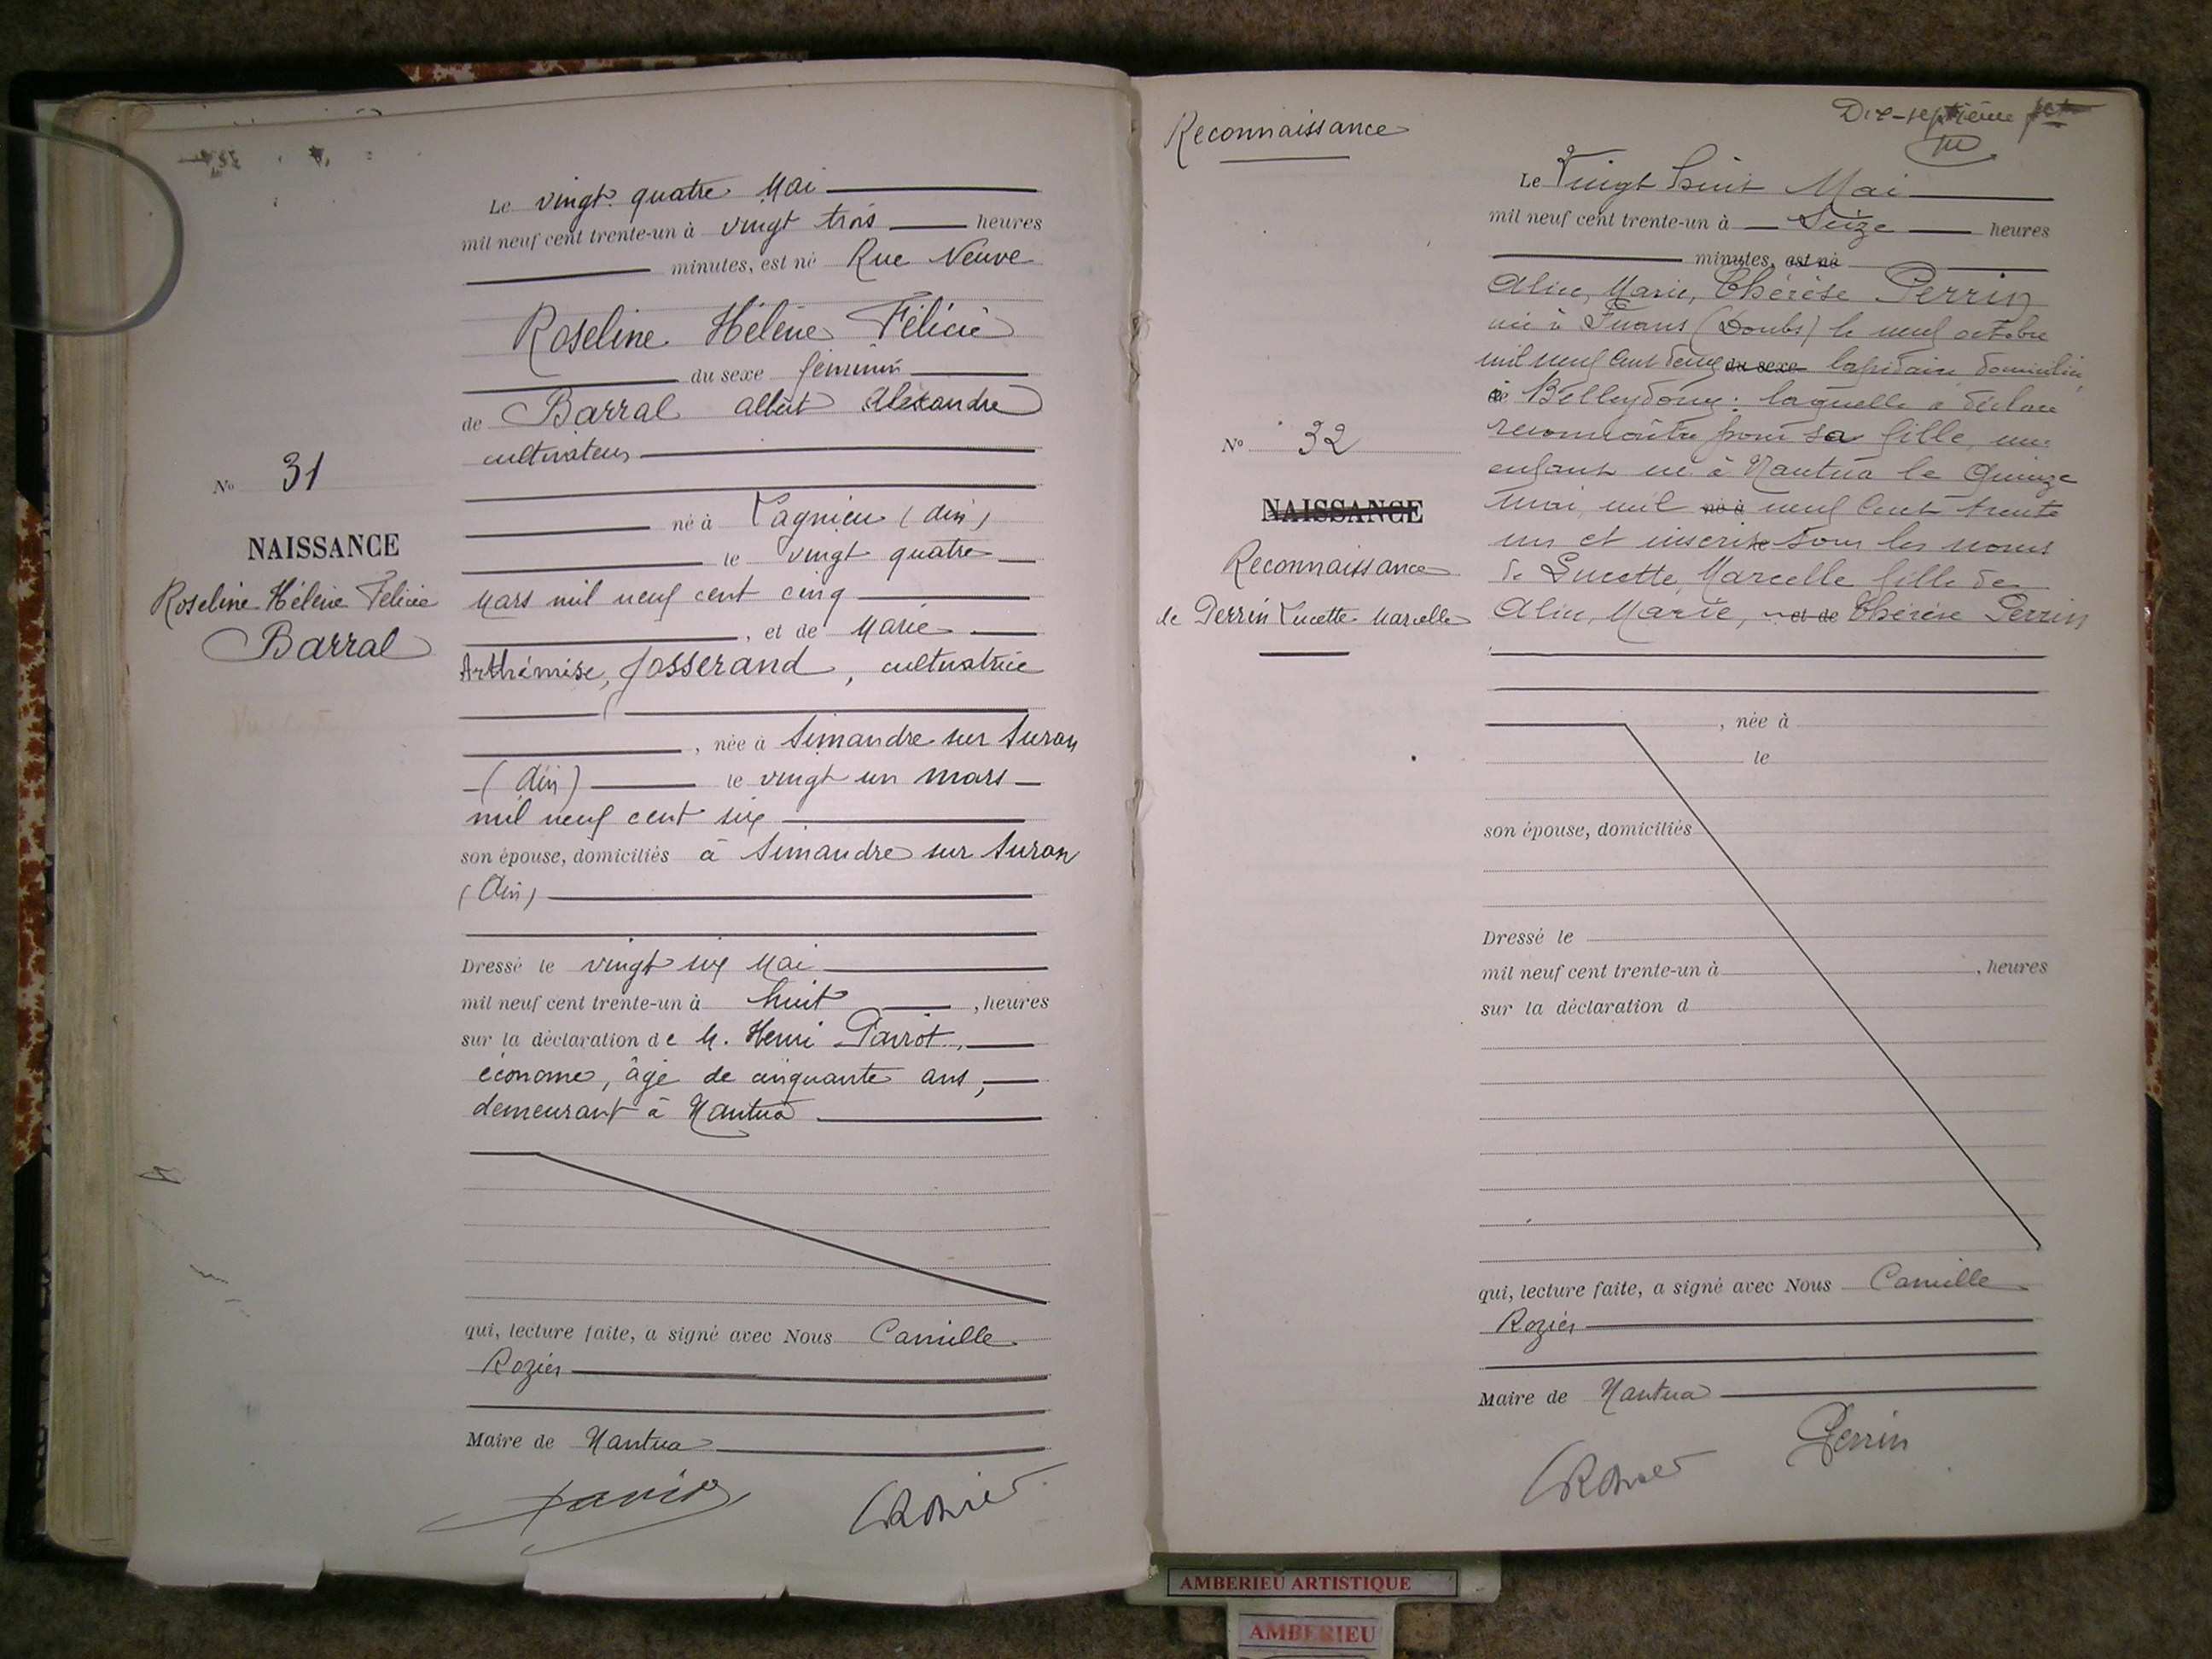 Le vingt quatre Mai
mil neuf cent trente-un à vingt trois heures
minutes, est né Rue Neuve
Roseline Hélène Félicie
du sexe féminin
de Barral Albert Alexandre
cultivateur
Nº 31
né à Lagnieu (Ain)
NAISSANCE
le vingt quatre
Roseline Hélène Félicie
Mars mil neuf cent cinq
, et de Marie
Barral
Arthémise, Josserand, cultivatrice
, née à Simandre sur Suran
(Ain) le vingt un mars
mil neuf cent six
son épouse, domiciliés à Simandre sur Suran
(Ain)
Dressé le vingt six Mai
mil neuf cent trente-un à huit , heures
sur la déclaration de M. Henri Parrot,
économe, âgé de cinquante ans,
demeurant à Nantua
qui, lecture faite, a signé avec Nous Camille
Rozier
Maire de Nantua
Reconnaissance
Dix-septième
Le Vingt huit Mai
mil neuf cent trente-un à Seize heures
minutes, est né
Aline, Marie, Thérèse Perrin
née à Fuans (Doubs) le neuf octobre
mil neuf cent douze du sexe lapidaire domiciliée
à Belleydoux: laquelle a déclaré
reconnaître pour sa fille, un
Nº 32
enfant né à Nantua le Quinze
NAISSANCE
mai, mil né à neuf cent trente
un et inscrite sous les noms
Reconnaissance
de Lucette, Marcelle fille de
de Perrin Lucette Marcelle
Aline, Marie, et de Thérèse Perrin
, née à
le
son épouse, domiciliés
Dressé le
mil neuf cent trente-un à , heures
sur la déclaration d
qui, lecture faite, a signé avec Nous Camille
Rozier
Maire de Nantua
Perrin
AMBERIEU ARTISTIQUE
AMBERIEU